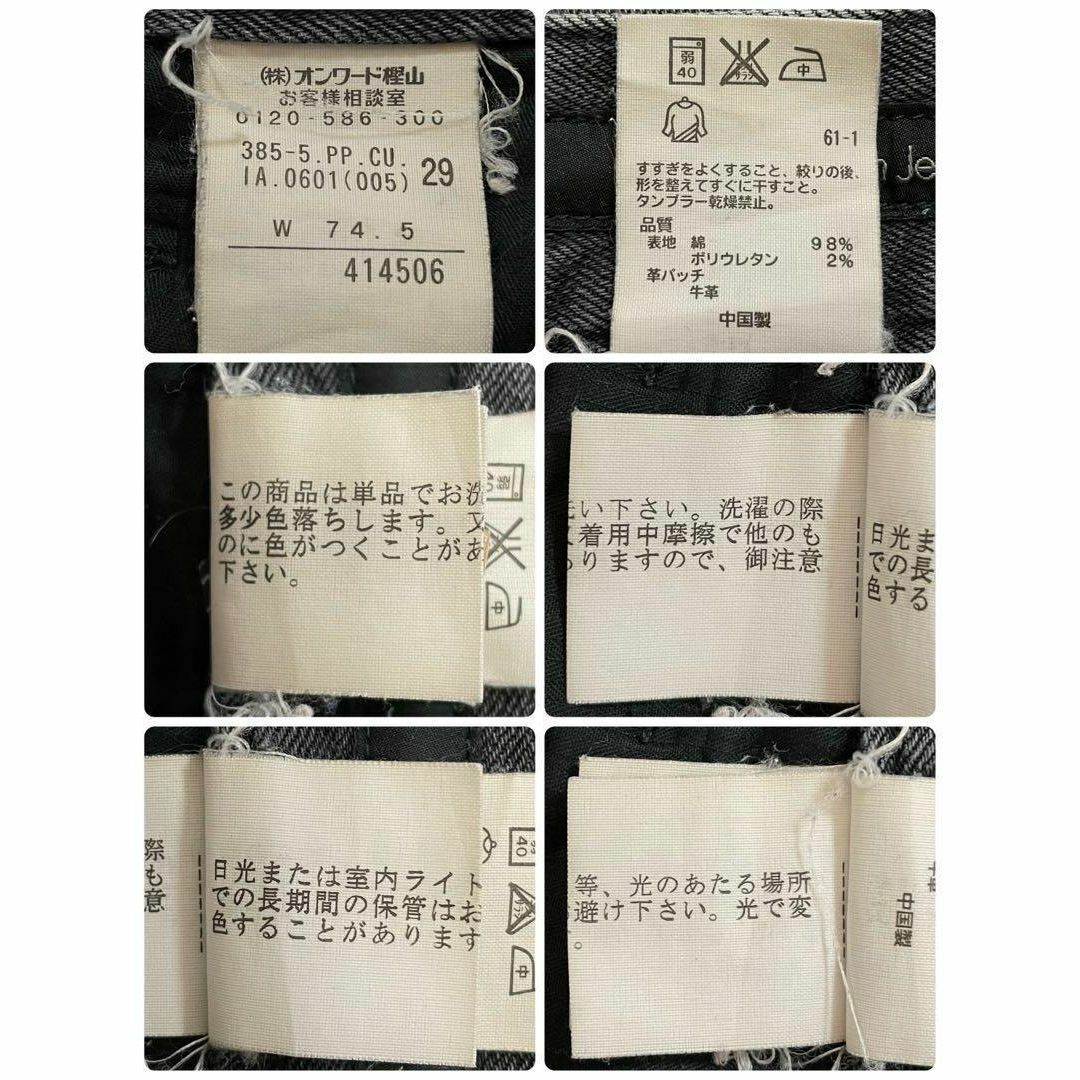 (株)オンワード樫山
お客様相談室
0120-586-300
385-5.PP.CU.
IA.0601(005) 29
W 74.5
414506
弱
40
エンソサラシ
中
61-1
すすぎをよくすること、絞りの後、
形を整えてすぐに干すこと。
タンブラー乾燥禁止。
品質
表地 綿 98%
ポリウレタン 2%
革パッチ
牛革
中国製
Je
この商品は単品でお洗
多少色落ちします。又
のに色がつくことがあ
下さい。
弱
40
中
い下さい。洗濯の際
着用中摩擦で他のも
りますので、御注意
日光ま
での長
色する
際
も
意
日光または室内ライト
での長期間の保管はお
色することがあります
40
中
等、光のあたる場所
避け下さい。光で変
。
中国製